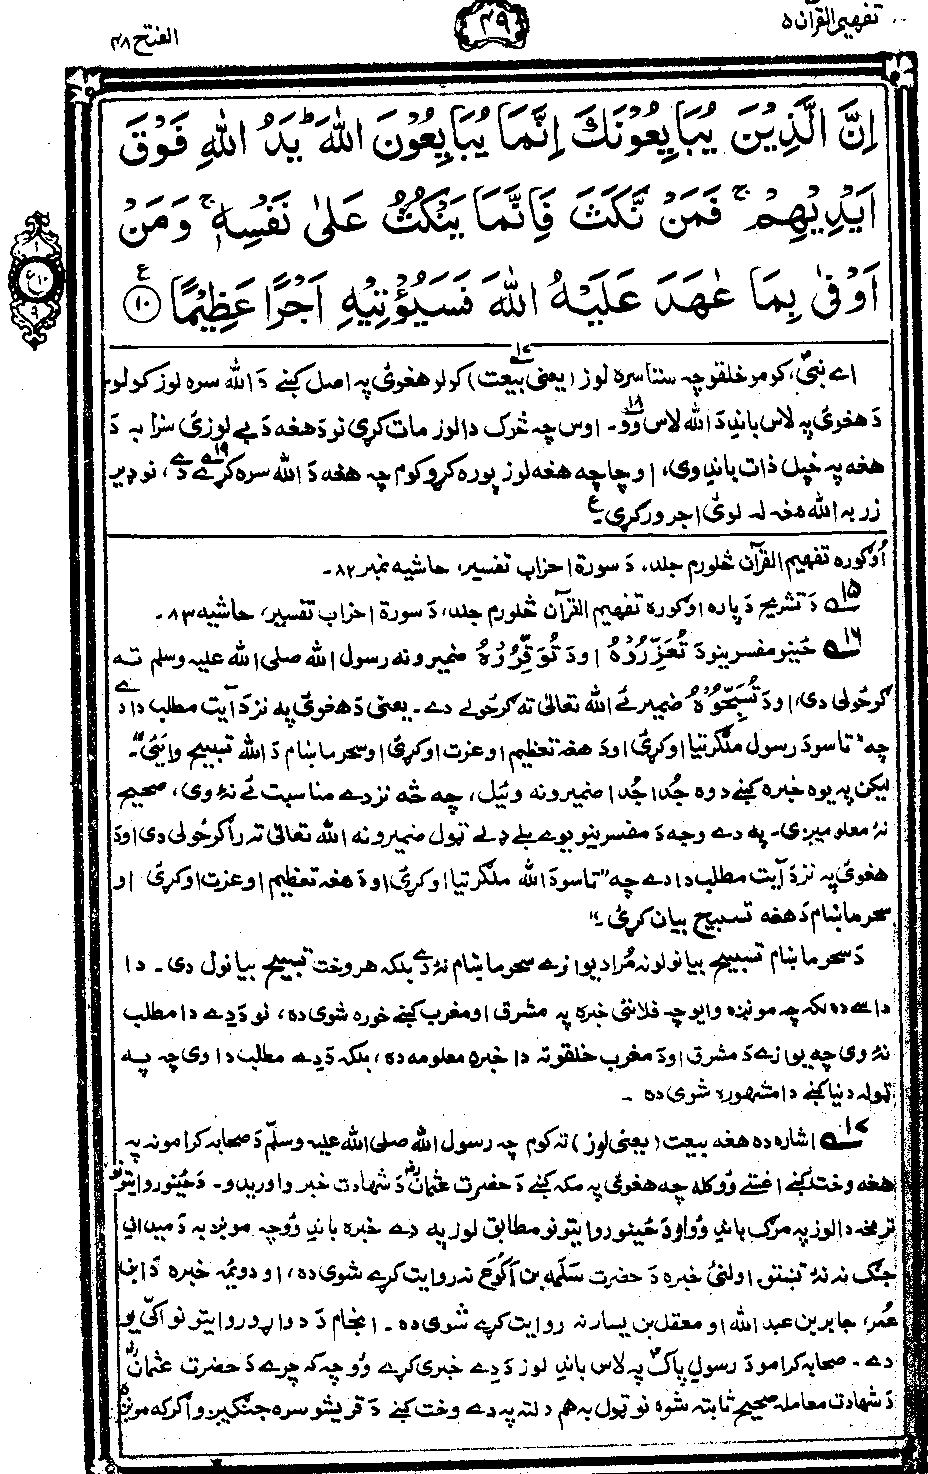 تفهیم القرآن ۵
۴۹
الفتح ۴۸
اِنَّ الَّذِيْنَ يُبَايِعُوْنَكَ اِنَّمَا يُبَايِعُوْنَ اللّٰهَ ؕ يَدُ اللّٰهِ فَوْقَ
اَيْدِيْهِمْ ۚ فَمَنْ نَّكَثَ فَاِنَّمَا يَنْكُثُ عَلٰى نَفْسِهٖ ۚ وَمَنْ
اَوْفٰى بِمَا عٰهَدَ عَلَيْهُ اللّٰهَ فَسَيُؤْتِيْهِ اَجْرًا عَظِيْمًا ۱۰ ع
اے نبیؐ، کومو خلقو چہ ستا سرہ لوز (یعنی بیعت) کولو هغوئ پہ اصل کښے دَ الله سرہ لوز کولو ۱۷
دَ هغوئ پہ لاس باندِ دَ الله لاس وُو ۱۸۔ اوس چہ څوک دا لوز مات کړی نو دَ هغہ دَ بے لوزئ سزا بہ دَ
هغہ پہ خپل ذات باندِ وی، او چا چہ هغہ لوز پورہ کړو کوم چہ هغہ دَ الله سرہ کړے دے ۱۹، نو ډیر
زر بہ الله هغہ لہ لوئ اجر ورکړی۔ ع
اُوګورہ تفهیم القرآن څلورم جلد، دَ سورۃ احزاب تفسیر، حاشیہ نمبر ۸۲۔
۱۵ دَ تشریح دَ پارہ اوګورہ تفهیم القرآن څلورم جلد، دَ سورۃ احزاب تفسیر، حاشیہ ۸۳۔
۱۶ ځینو مفسرینو دَ تُعَزِّرُوْهُ او دَ تُوَقِّرُوْهُ ضمیرونہ رسول الله صلی الله علیہ وسلم تہ
ګرځولی دی، او دَ تُسَبِّحُوْهُ ضمیر ئے الله تعالیٰ تہ ګرځولے دے۔ یعنی دَ هغوئ پہ نزد دَ آیت مطلب دا دے
چہ "تاسو دَ رسول ملګرتیا اوکړئ او دَ هغہ تعظیم او عزت اوکړئ او سحر ماښام دَ الله تسبیح وایئ"۔
لیکن پہ یوہ خبرہ کښے دوہ جُدا جُدا ضمیرونہ وئیل، چہ څہ نزدے مناسبت ئے نہ وی، صحیح
نہ معلومیږی۔ پہ دے وجہ دَ مفسرینو بوے بلے ډلے ټول ضمیرونہ الله تعالیٰ تہ راګرځولی دی او دَ
هغوئ پہ نزد دَ آیت مطلب دا دے چہ "تاسو دَ الله ملګرتیا اوکړئ او دَ هغہ تعظیم او عزت اوکړئ او
سحر ماښام دَ هغہ تسبیح بیان کړئ۔"
دَ سحر ماښام تسبیح بیانولو نہ مُراد یوازے سحر ماښام نہ دے بلکہ هر وخت تسبیح بیانول دی۔ دا
داسے دہ لکہ چہ مونږہ وایو چہ فلانئ خبرہ پہ مشرق او مغرب کښے خورہ شوی دہ، نو دَ دے دا مطلب
نہ وی چہ یوازے دَ مشرق او دَ مغرب خلقو تہ دا خبرہ معلومہ دہ، بلکہ دَ دے مطلب دا وی چہ پہ
ټولہ دنیا کښے دا مشهورہ شوی دہ ۔
۱۷ اشارہ دہ هغہ بیعت (یعنی لوز) تہ کوم چہ رسول الله صلی الله علیہ وسلّم دَ صحابہ کرامو نہ پہ
هغہ وخت کښے اغستے وُو کلہ چہ هغوئ پہ مکہ کښے دَ حضرت عثمانؓ دَ شهادت خبر واوریدو۔ دَ ځینو روایتونو
تر مخہ دا لوز پہ مرګ باندِ وُو او دَ ځینو روایتونو مطابق لوز پہ دے خبرہ باندِ وُو چہ مونږ بہ دَ میدانِ
جنګ نہ نہ تښتو۔ اولنئ خبرہ دَ حضرت سَلَمہ بن اَکْوَع نہ روایت کړے شوی دہ، او دوئمہ خبرہ دَ ابن
عُمر، جابر بن عبد الله او معقل بن یسار نہ روایت کړے شوی دہ۔ انجام دَ دواړو روایتونو اکّی یو
دے۔ صحابہ کرامو دَ رسول پاکؐ پہ لاس باندِ لوز دَ دے خبری کړے وُو چہ کہ چرے دَ حضرت عثمانؓ
دَ شهادت معاملہ صحیح ثابتہ شوہ نو ټول بہ هم دلتہ پہ دے وخت کښے دَ قریشو سرہ جنګیږو اګر کہ مونږ